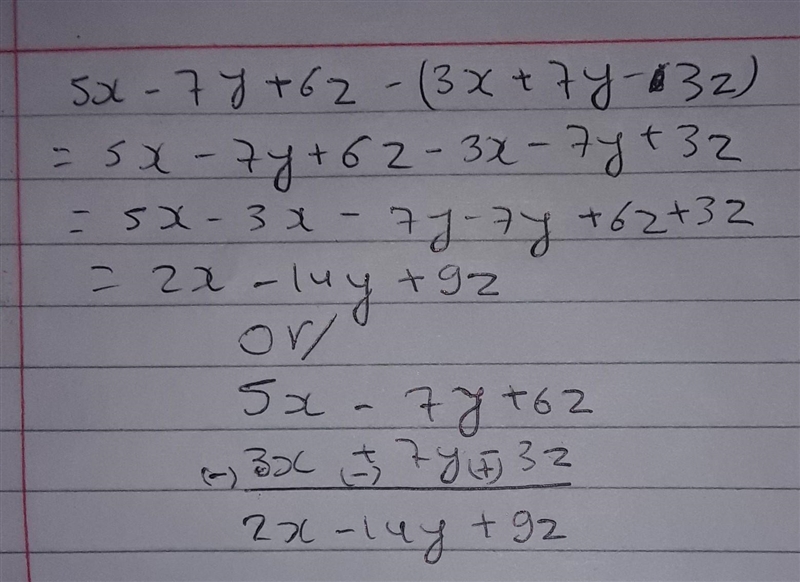 5x - 7y + 6z - (3x + 7y - 3z)
= 5x - 7y + 6z - 3x - 7y + 3z
= 5x - 3x - 7y - 7y + 6z + 3z
= 2x - 14y + 9z
or/
5x - 7y + 6z
(-) 3x + (-) 7y - (+) 3z
2x - 14y + 9z